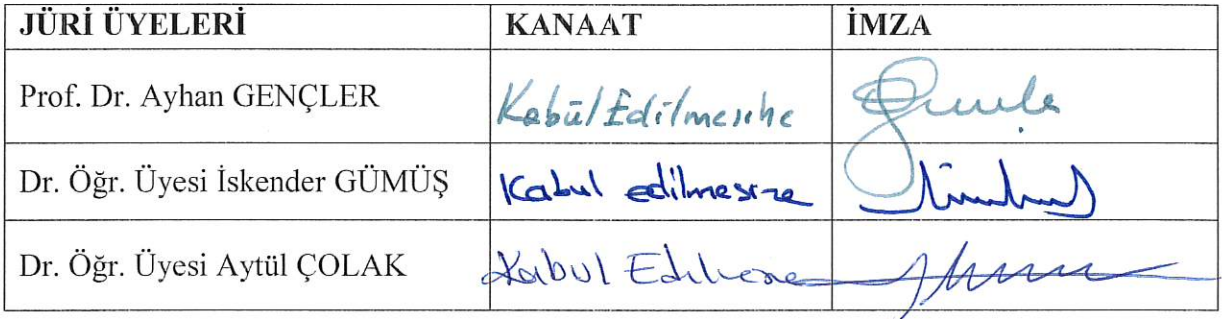 JÜRİ ÜYELERİ KANAAT İMZA
Prof. Dr. Ayhan GENÇLER Kabül Edilmesine
Dr. Öğr. Üyesi İskender GÜMÜŞ Kabul edilmesine
Dr. Öğr. Üyesi Aytül ÇOLAK Kabul